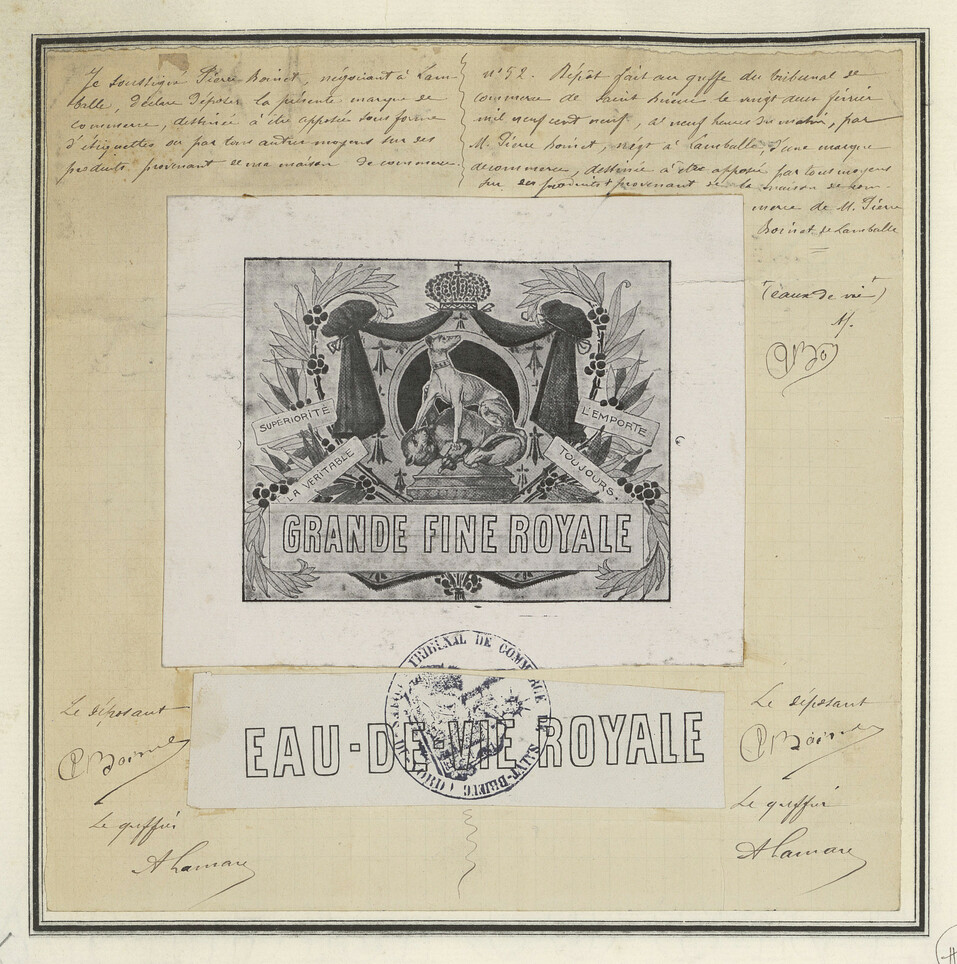 Je soussigné Pierre Boinet, négociant à Lam-
balle, déclare déposer la présente marque de
commerce, destinée à être apposée sous forme
d'étiquettes ou par tous autres moyens sur des
produits provenant de ma maison de commerce.
n° 52. Dépôt fait au greffe du tribunal de
commerce de Saint Brieuc le vingt deux février
mil neuf cent neuf, à neuf heures du matin, par
M. Pierre Boinet, négt à Lamballe, d'une marque
de commerce, destinée à être apposée par tous moyens
sur des produits provenant de la maison de com-
merce de M. Pierre
Boinet de Lamballe
(eaux de vie)
SUPÉRIORITÉ
L'EMPORTE
LA VÉRITABLE
TOUJOURS
GRANDE FINE ROYALE
TRIBUNAL DE COMMERCE DE SAINT-BRIEUC
EAU-DE-VIE ROYALE
Le déposant
PBoinet
Le greffier
A Lamare
Le déposant
PBoinet
Le greffier
A Lamare